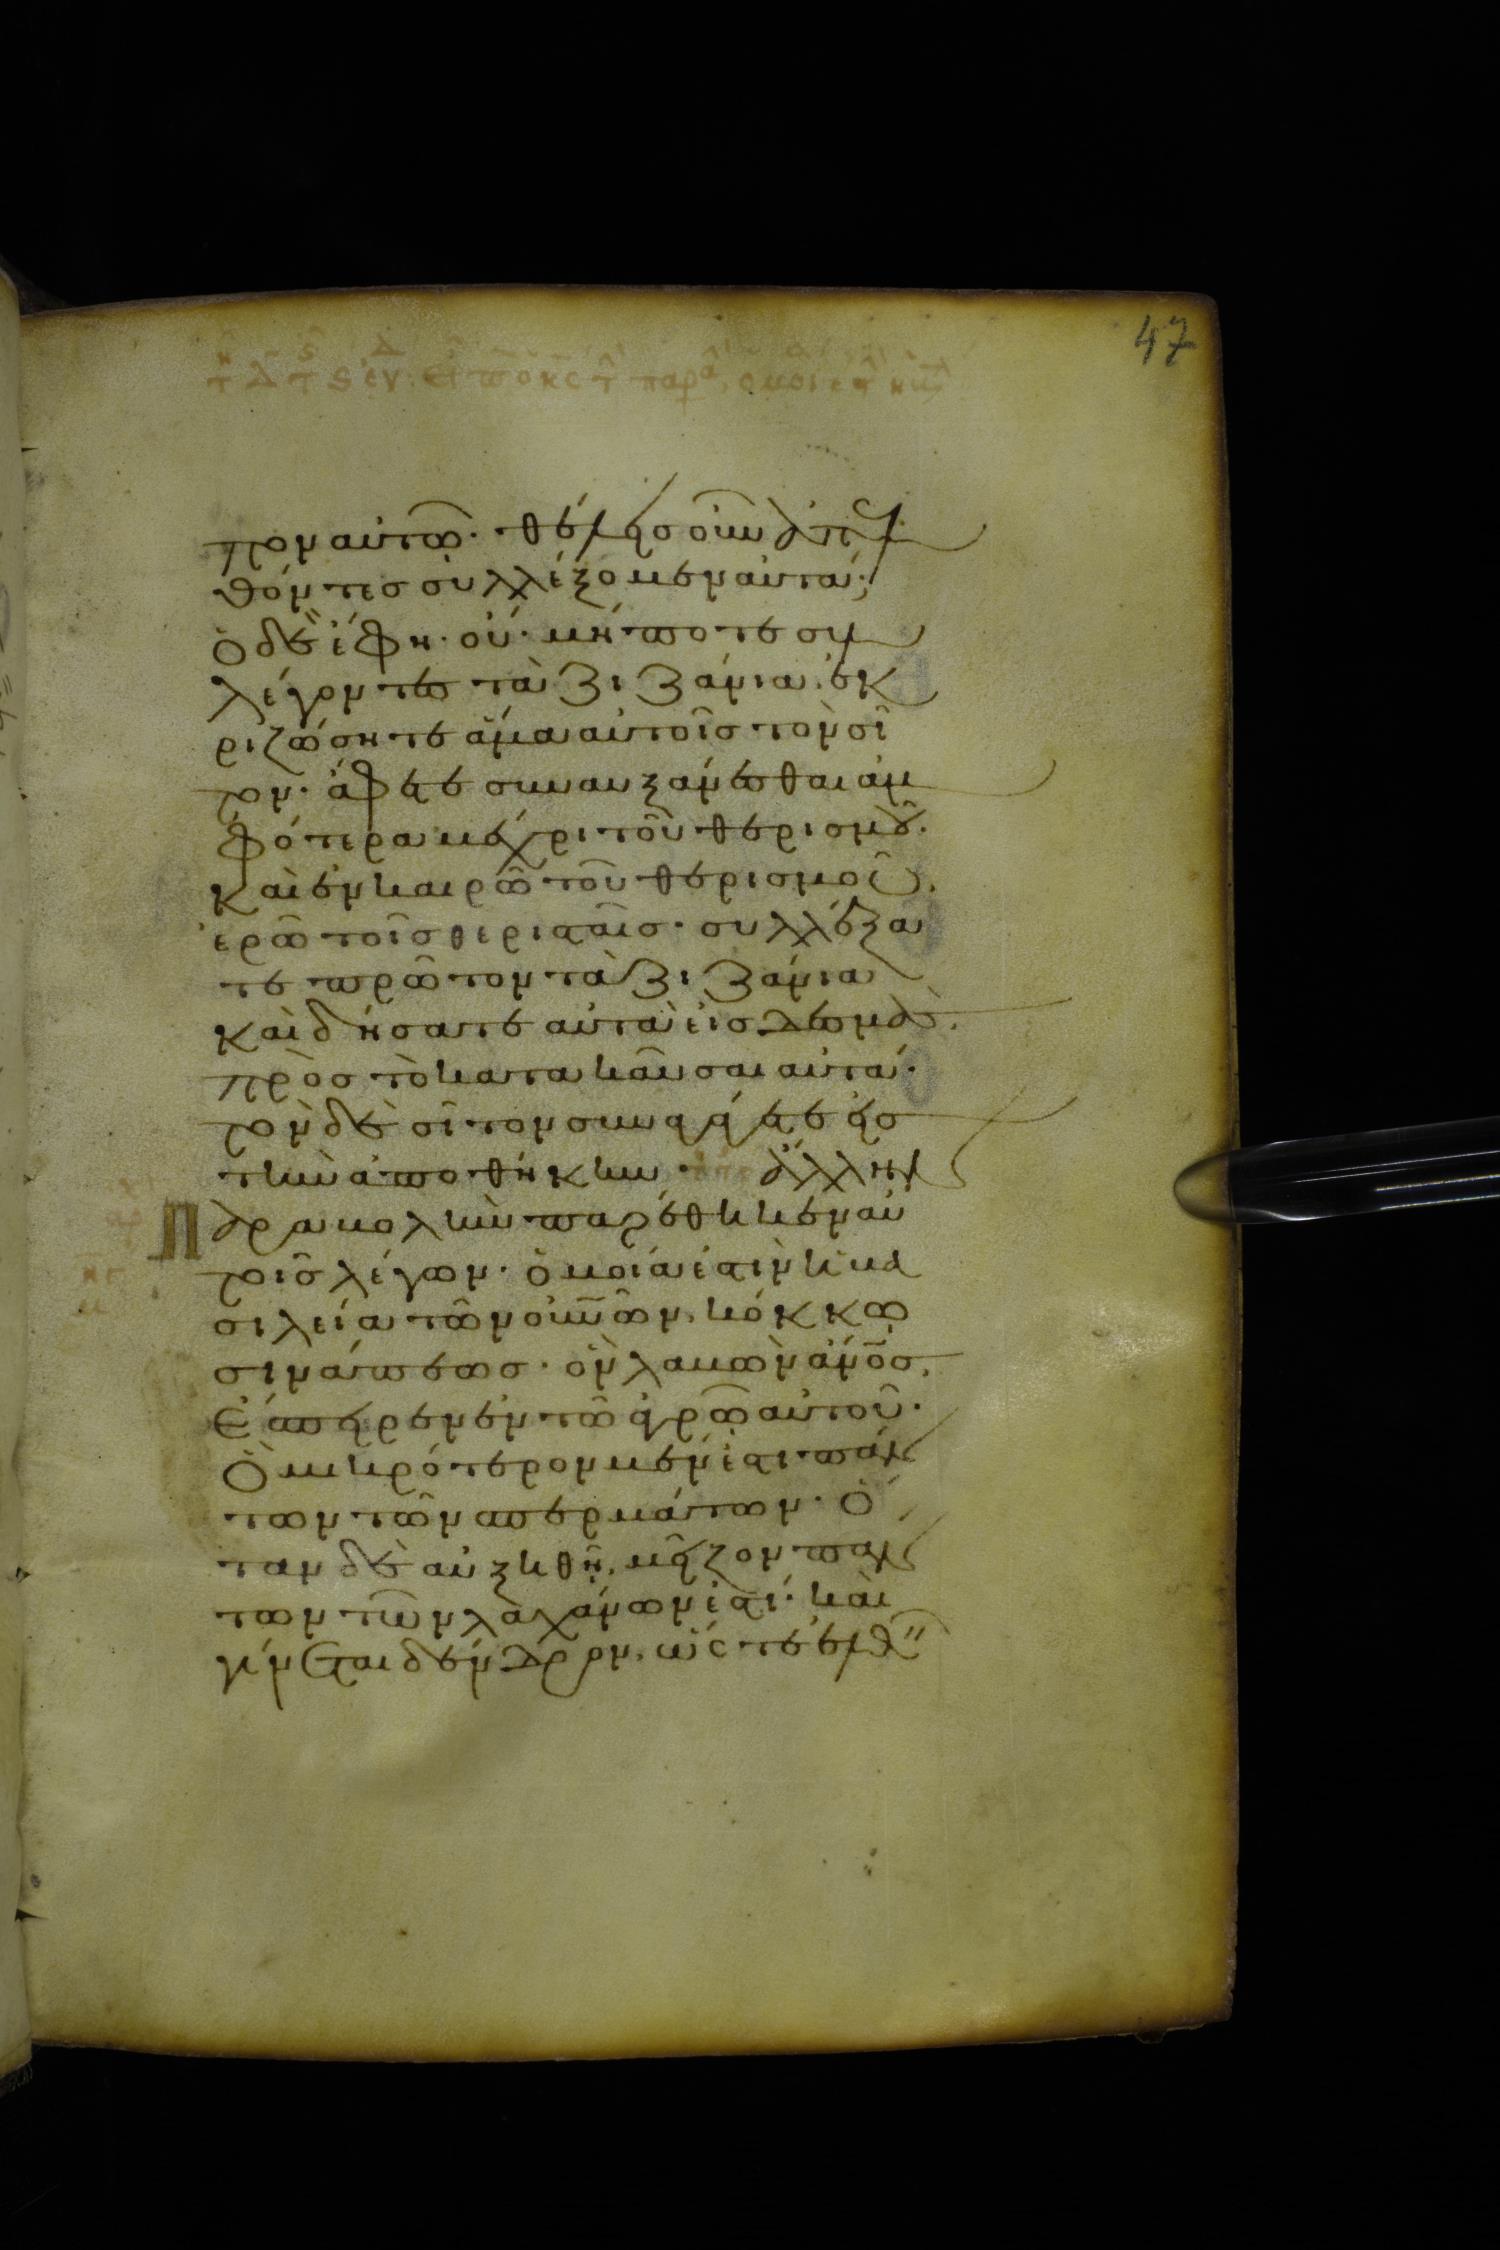 47
πον αὐτῶ· θέλεις οὖν ἀπελ
θόντες συλλέξομεν αὐτά;
Ὁ δὲ ἔφη· οὔ· μήποτε συλ
λέγοντες τὰ ζιζάνια, ἐκ
ριζώσητε ἅμα αὐτοῖς τὸν σῖ
τον· ἄφετε συναυξάνεσθαι ἀμ
φότερα μέχρι τοῦ θερισμοῦ·
καὶ ἐν καιρῶ τοῦ θερισμοῦ,
ἐρῶ τοῖς θερισταῖς· συλλέξα
τε πρῶτον τὰ ζιζάνια
καὶ δήσατε αὐτὰ εἰς δεσμὰς,
πρὸς τὸ κατακαῦσαι αὐτά·
τὸν δὲ σῖτον συναγάγετε εἰς
τὴν ἀποθήκην· ἄλλην
παραβολὴν παρέθηκεν αὐ
τοῖς λέγων· ὁμοία ἐστὶν ἡ βα
σιλεία τῶν οὐνῶν, κόκκω
σινάπεως· ὃν λαβὼν ἄνος,
ἔσπειρεν ἐν τῶ ἀγρῶ αὐτοῦ·
Ὃ μικρότερον μέν ἐστι πάν
των τῶν σπερμάτων· ὅ
ταν δὲ αὐξηθῆ, μεῖζον πάν
των τῶν λαχάνων ἐστί· καὶ
γίνεται δένδρον, ὥστε ἐλθεῖν